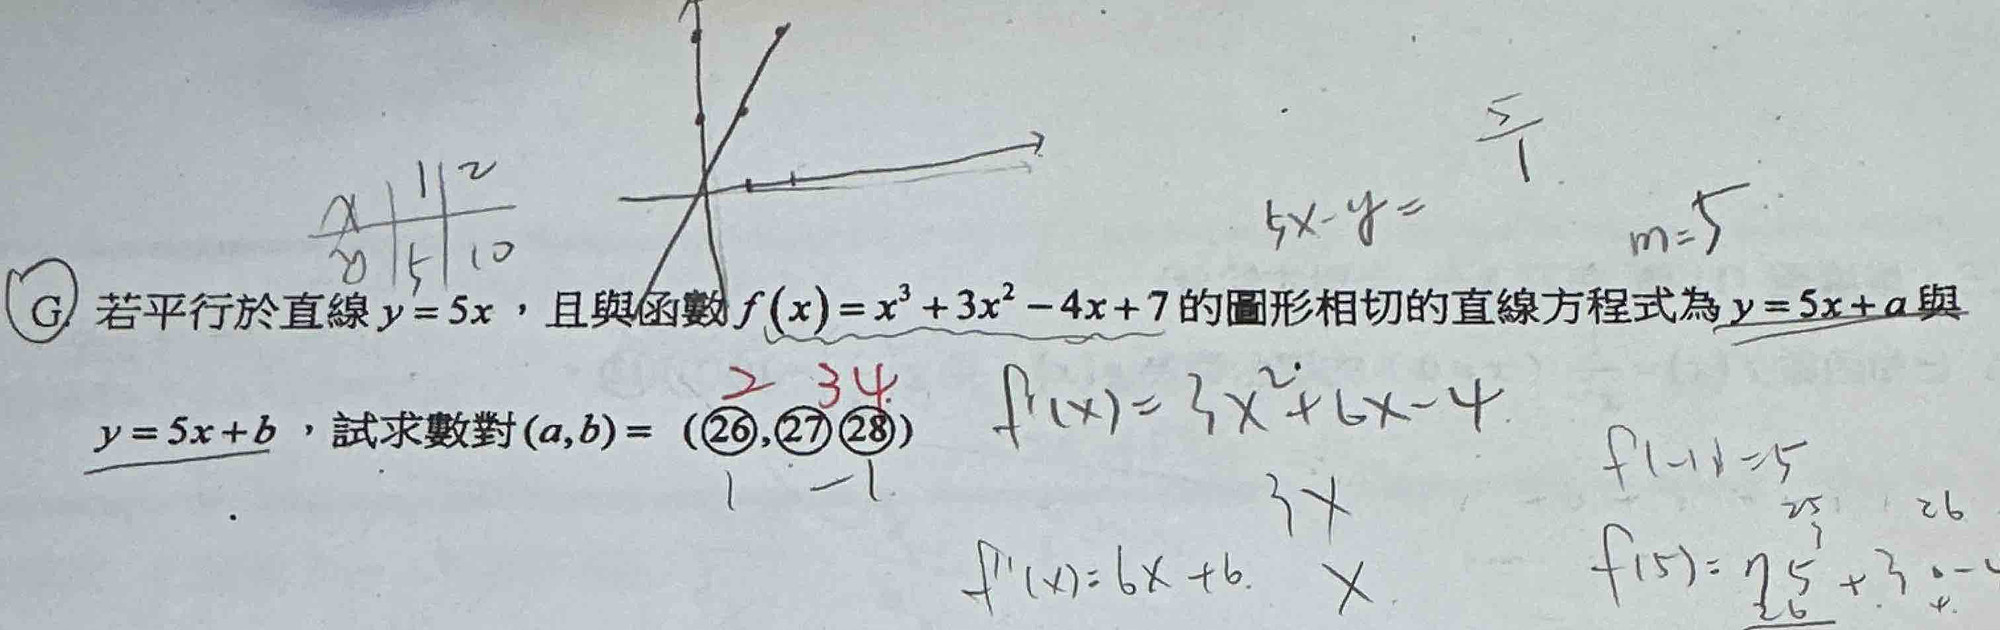 5/1
x | 1 | 2
y | 5 | 10
5x-y=
m=5
G. 若平行於直線 y = 5x，且與函數 f(x) = x³ + 3x² − 4x + 7 的圖形相切的直線方程式為 y = 5x + a 與
2 34
y = 5x + b，試求數對 (a,b) = (㉖,㉗㉘)
1 −1
f'(x) = 3x²+6x−4
f(−1)=5
3x
f''(x)=6x+6
x
25 26
f(5)=